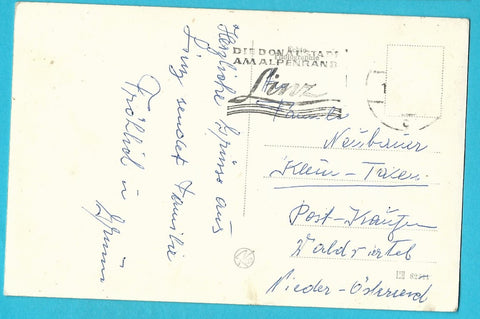 Herzliche Grüsse aus
Linz sendet Familie
Fröhlich u
DIE DONAUSTADT
AM ALPENRAND
Linz
Familie
Neubauer
Klein-Taxen
Post-Kautzen
Waldviertel
Nieder-Österreich